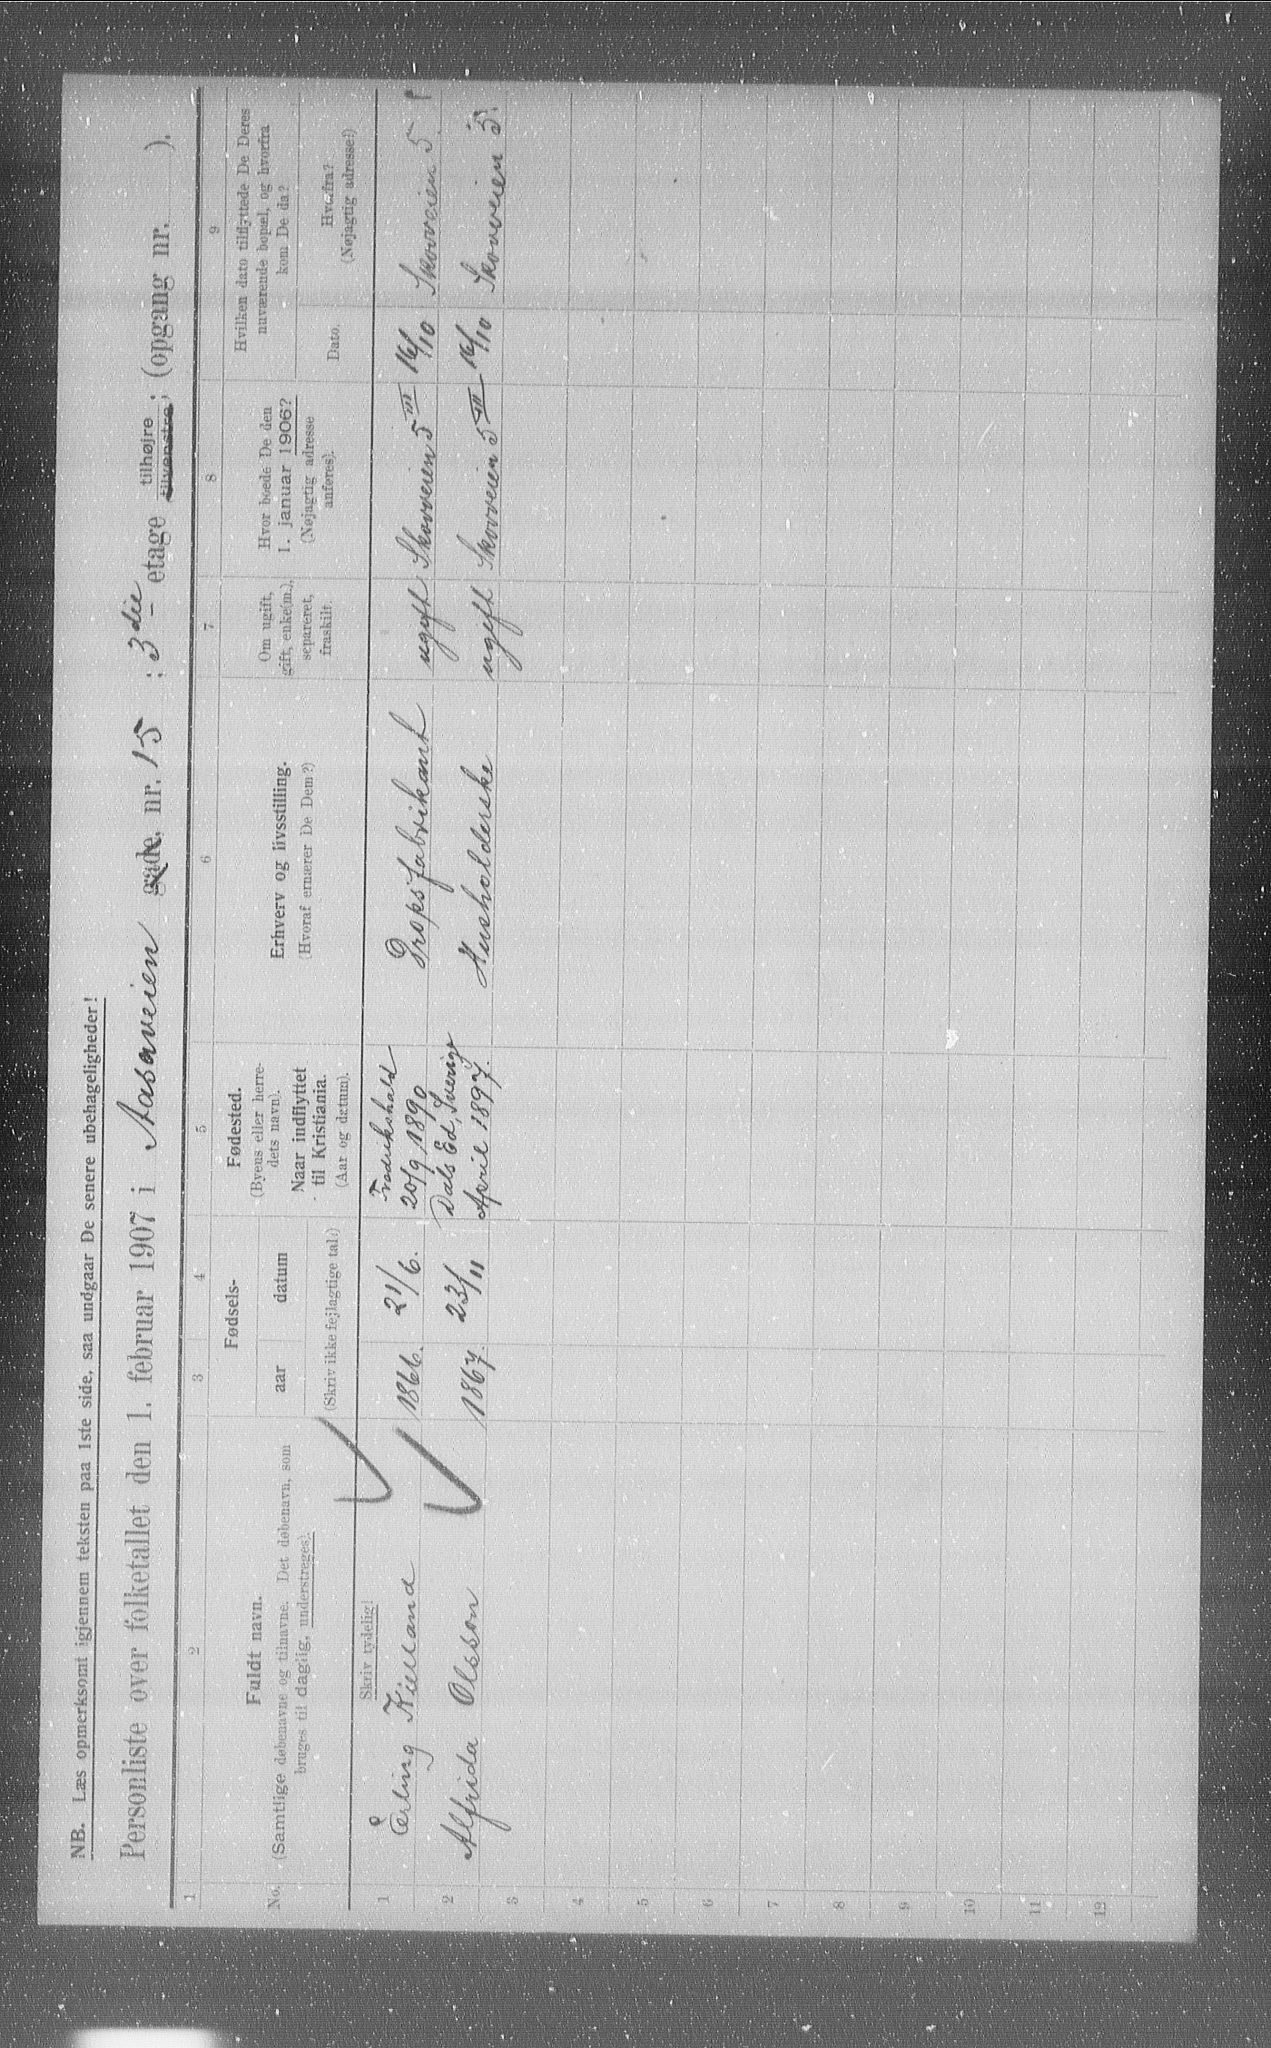 NB. Læs opmerksomt igjennem teksten paa 1ste side, saa undgaar De senere ubehageligheder!
Personliste over folketallet den 1. februar 1907 i Aasaveien gade, nr. 15 : 3die - etage tilhøjre tilvenstre; (opgang nr. ).
1 2 3 4 5 6 7 8 9
No.
Fuldt navn.
(Samtlige døbenavne og tilnavne. Det døbenavn, som
bruges til daglig, understreges).
Skriv tydelig!
Fødsels-
aar datum
(Skriv ikke fejlagtige tal!)
Fødested.
(Byens eller herre-
dets navn).
Naar indflyttet
til Kristiania.
(Aar og datum).
Erhverv og livsstilling.
(Hvoraf ernærer De Dem?)
Om ugift,
gift, enke(m.),
separeret,
fraskilt.
Hvor boede De den
1. januar 1906?
(Nøjagtig adresse
anføres).
Hvilken dato tilflyttede De Deres
nuværende bopæl, og hvorfra
kom De da?
Dato.
Hvorfra?
(Nøjagtig adresse!)
1 Erling Kielland 1866. 21/6. Fredrikshald 20/9 1890 Dropsfabrikant ugift Skovveien 5 III 16/10 Skovveien 5.
2 Alfrida Olsson 1867. 23/11 Dals Ed, Sverige April 1897. Husholderske ugift Skovveien 5 III 16/10 Skovveien 5.
3
4
5
6
7
8
9
10
11
12